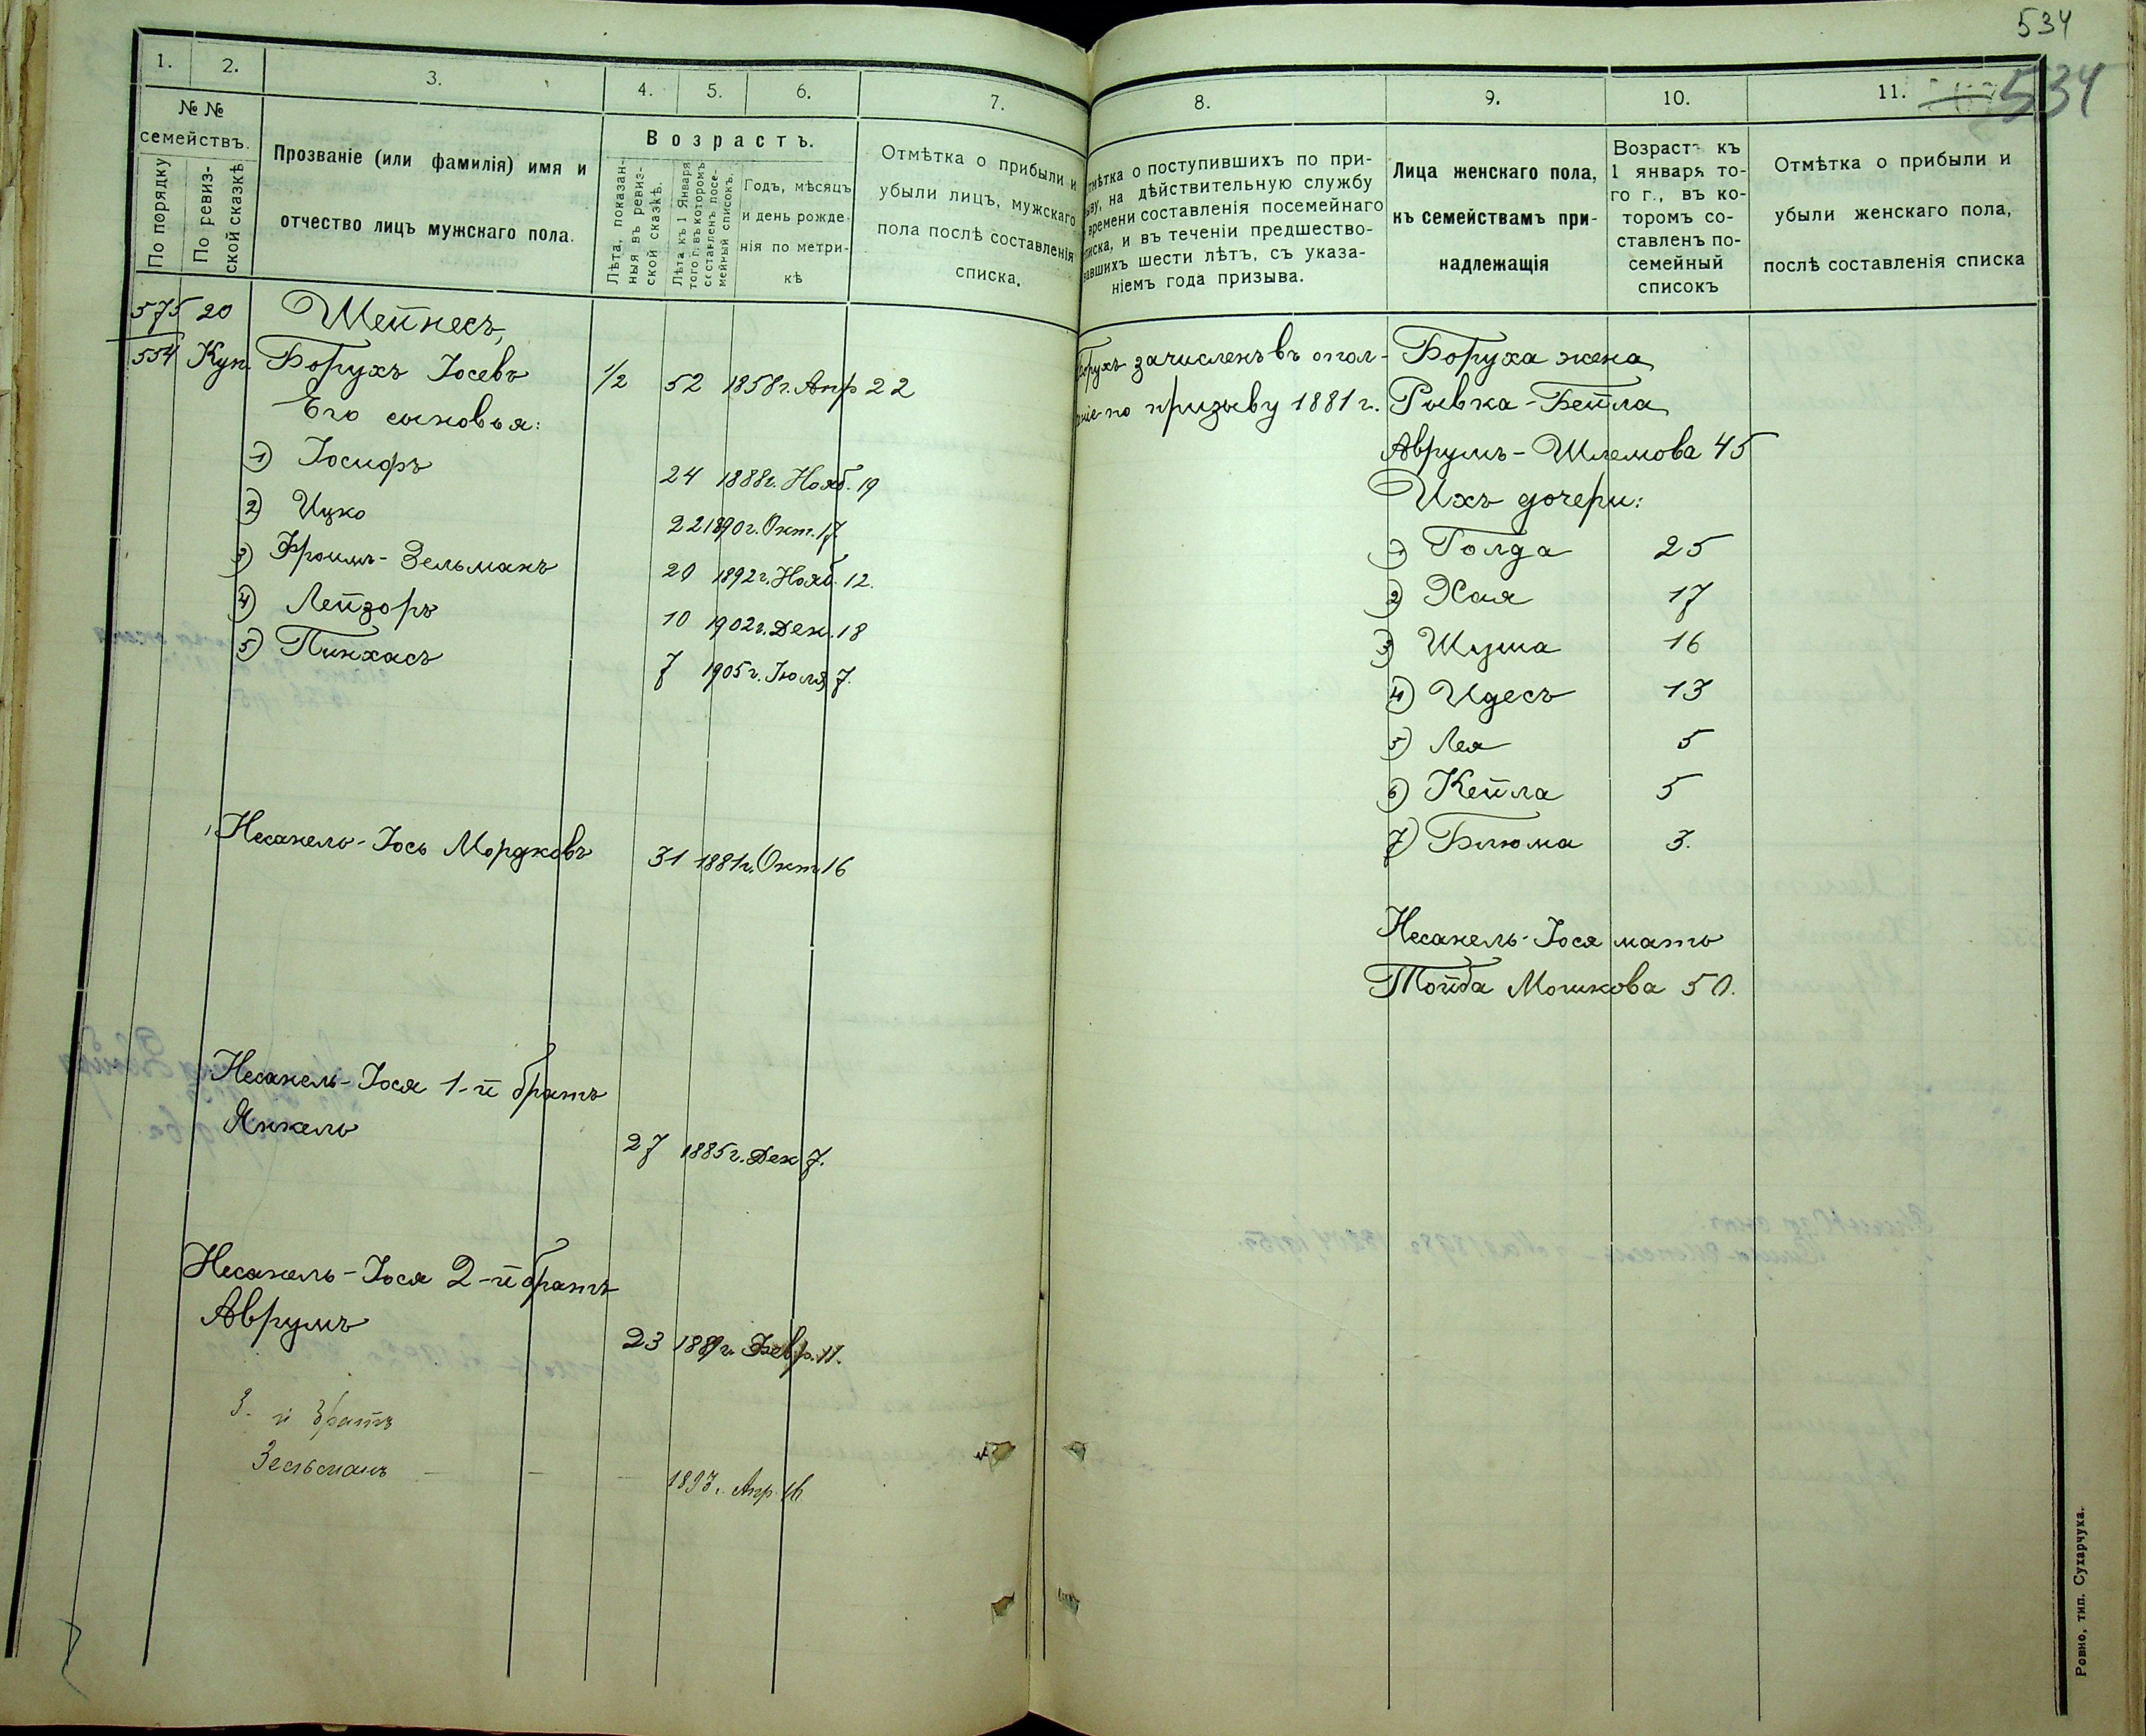 534
534
1.
2.
3.
4.
5.
6.
7.
№ №
семействъ.
По порядку
По ревиз-
ской сказкѣ
Прозваніе (или фамилія) имя и
отчество лицъ мужскаго пола.
Возрастъ.
Лѣта, показан-
ныя въ ревиз-
ской сказкѣ.
Лѣта къ 1 Января
того г. въ которомъ
составленъ посе-
мейный списокъ.
Годъ, мѣсяцъ
и день рожде-
нія по метри-
кѣ
Отмѣтка о прибыли и
убыли лицъ, мужскаго
пола послѣ составленія
списка.
575 20 Шейнесъ,
554 Куп. Борухъ Іосевъ 1/2 52 1858 г. Апр 22
Его сыновья:
1) Іосифъ 24 1888 г. Нояб. 19
2) Ицко 22 1890 г. Окт. 17.
3) Фроимъ-Зельманъ 20 1892 г. Нояб. 12.
4) Лейзоръ 10 1902 г. Дек. 18
5) Пинхасъ 7 1905 г. Іюля 7.
Несанель-Іось Мордковъ 31 1881 г. Окт 16
Несанель-Іося 1-й братъ
Янкель 27 1885 г. Дек 7.
Несанель-Іося 2-й братъ
Аврумъ 23 1889 г. Февр. 11.
3-й братъ
Зельманъ — — — 1893 г. Апр 16
8.
9.
10.
11.
отмѣтка о поступившихъ по при-
зыву, на дѣйствительную службу
времени составленія посемейнаго
списка, и въ теченіи предшество-
вавшихъ шести лѣтъ, съ указа-
ніемъ года призыва.
Лица женскаго пола,
къ семействамъ при-
надлежащія
Возрастъ къ
1 января то-
го г., въ ко-
торомъ со-
ставленъ по-
семейный
списокъ
Отмѣтка о прибыли и
убыли женскаго пола,
послѣ составленія списка
Борухъ зачисленъ въ опол- Боруха жена
ченіе по призыву 1881 г. Рывка-Бейла
Аврумъ-Шлемова 45
Ихъ дочери:
1) Голда 25
2) Хая 17
3) Шуша 16
4) Идесъ 13
5) Лея 5
6) Кейла 5
7) Блюма 3.
Несанель-Іося мать
Тойба Мошкова 50.
Ровно, тип. Сухарчука.